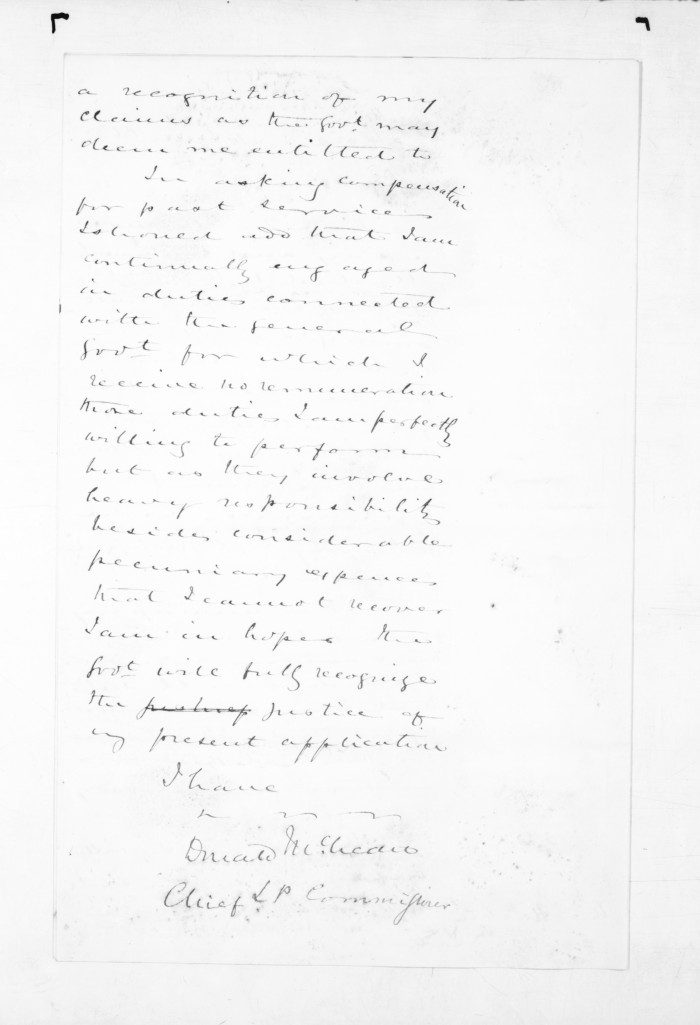 a recognition of my
claims as the Govt may
deem me entitled to
In asking compensation
for past services
I should add that I am
continually engaged
in duties connected
with the general
Govt for which I
receive no remuneration
those duties I am perfectly
willing to perform
but as they involve
heavy responsibility
besides considerable
pecuniary expences
that I cannot recover
I am in hopes the
Govt will fully recognize
the justice of
my present application
I have
Donald McLean
Chief L P Commissioner